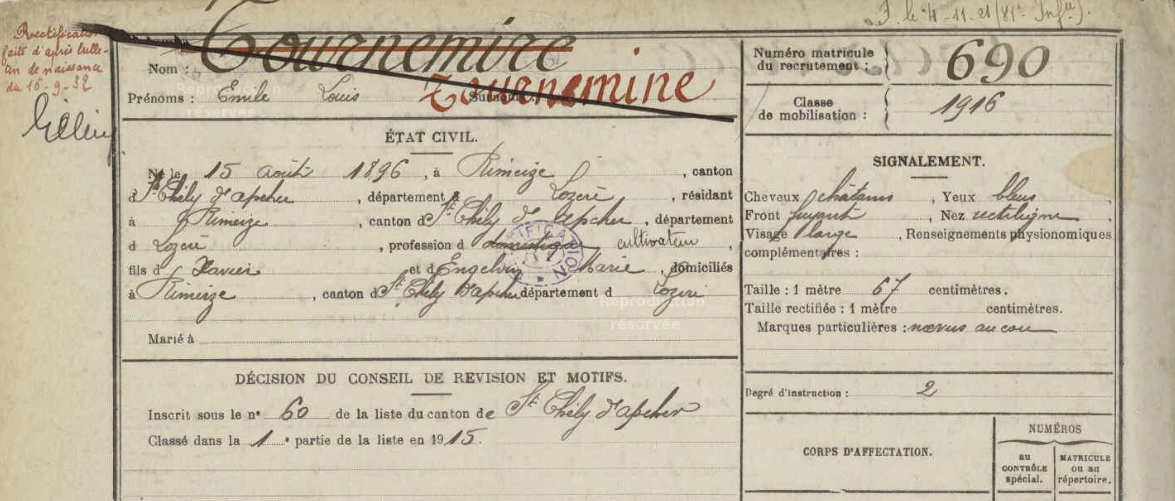 F. le 4-11-21 (81e Infie).
Rectification
faite d'après bulle-
tin de naissance
du 16-9-32
Nom : Tournemire
Tournemine
Prénoms : Emile Louis Surnoms :
Numéro matricule
du recrutement : 690
Classe
de mobilisation : 1916
ÉTAT CIVIL.
Né le 15 août 1896, à Rimeize, canton
d St Chély d'apcher, département d Lozère, résidant
à Rimeize, canton d St Chély d'Apcher, département
d Lozère, profession d domestique cultivateur
fils d Xavier et d Engelvin Marie, domiciliés
à Rimeize, canton d St Chély d'apcher département d Lozère
Reproduction
réservée
Marié à
SIGNALEMENT.
Cheveux châtains, Yeux bleus,
Front fuyant, Nez rectiligne,
Visage large, Renseignements physionomiques
complémentaires :
Taille : 1 mètre 67 centimètres.
Taille rectifiée : 1 mètre centimètres.
Marques particulières : nœvus au cou
DÉCISION DU CONSEIL DE REVISION ET MOTIFS.
Inscrit sous le n° 60 de la liste du canton de St Chély d'apcher
Classé dans la 1e partie de la liste en 1915.
Degré d'instruction : 2
CORPS D'AFFECTATION.
NUMÉROS
au
CONTRÔLE
spécial.
MATRICULE
ou au
répertoire.